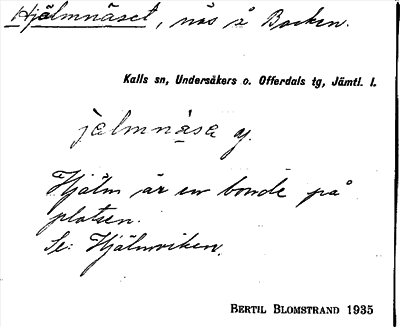 Hjälmnäset, näs å Backen.
Kalls sn, Undersåkers o. Offerdals tg, Jämtl. l.
jälmnäsa
Hjälm är en bonde på
platsen.
Se: Hjälmviken.
BERTIL BLOMSTRAND 1935